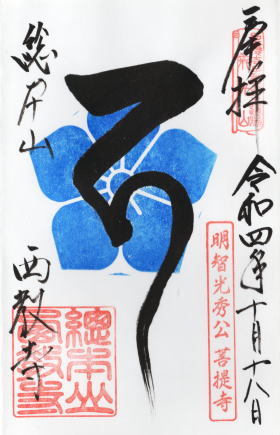 奉拝
令和四年十月十八日
明智光秀公 菩提寺
総本山
西教寺
總本山西教寺